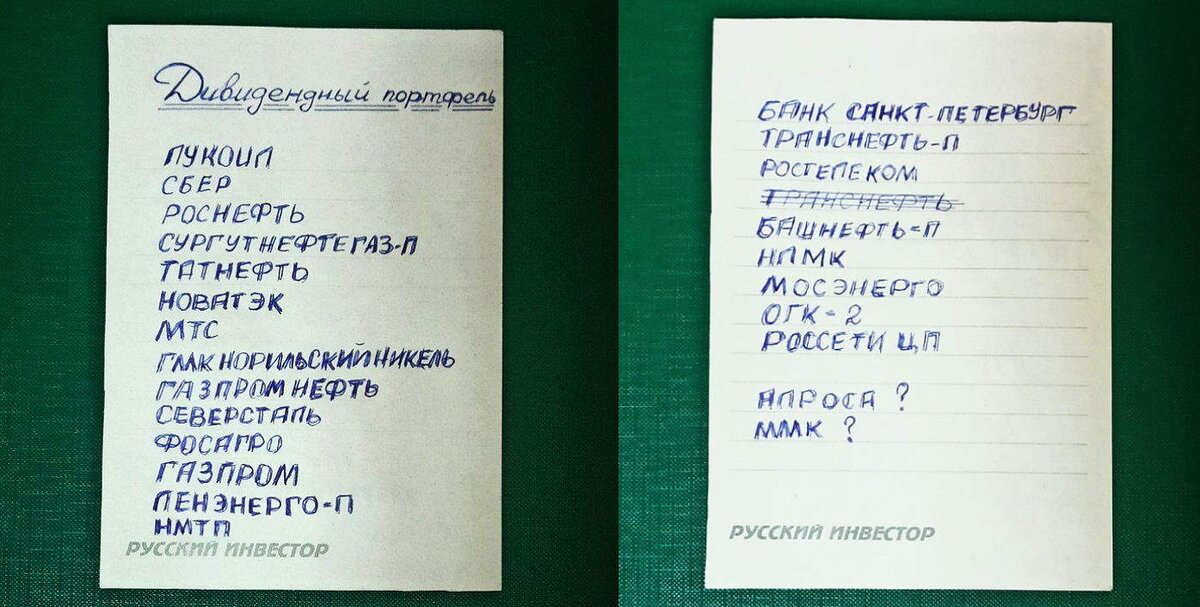 Дивидендный портфель
ЛУКОИЛ
СБЕР
РОСНЕФТЬ
СУРГУТНЕФТЕГАЗ-П
ТАТНЕФТЬ
НОВАТЭК
МТС
ГМК НОРИЛЬСКИЙ НИКЕЛЬ
ГАЗПРОМ НЕФТЬ
СЕВЕРСТАЛЬ
ФОСАГРО
ГАЗПРОМ
ЛЕНЭНЕРГО-П
НМТП
РУССКИЙ ИНВЕСТОР
БАНК САНКТ-ПЕТЕРБУРГ
ТРАНСНЕФТЬ-П
РОСТЕЛЕКОМ
ТРАНСНЕФТЬ
БАШНЕФТЬ-П
НЛМК
МОСЭНЕРГО
ОГК-2
РОССЕТИ ЦП
АЛРОСА ?
ММК ?
РУССКИЙ ИНВЕСТОР